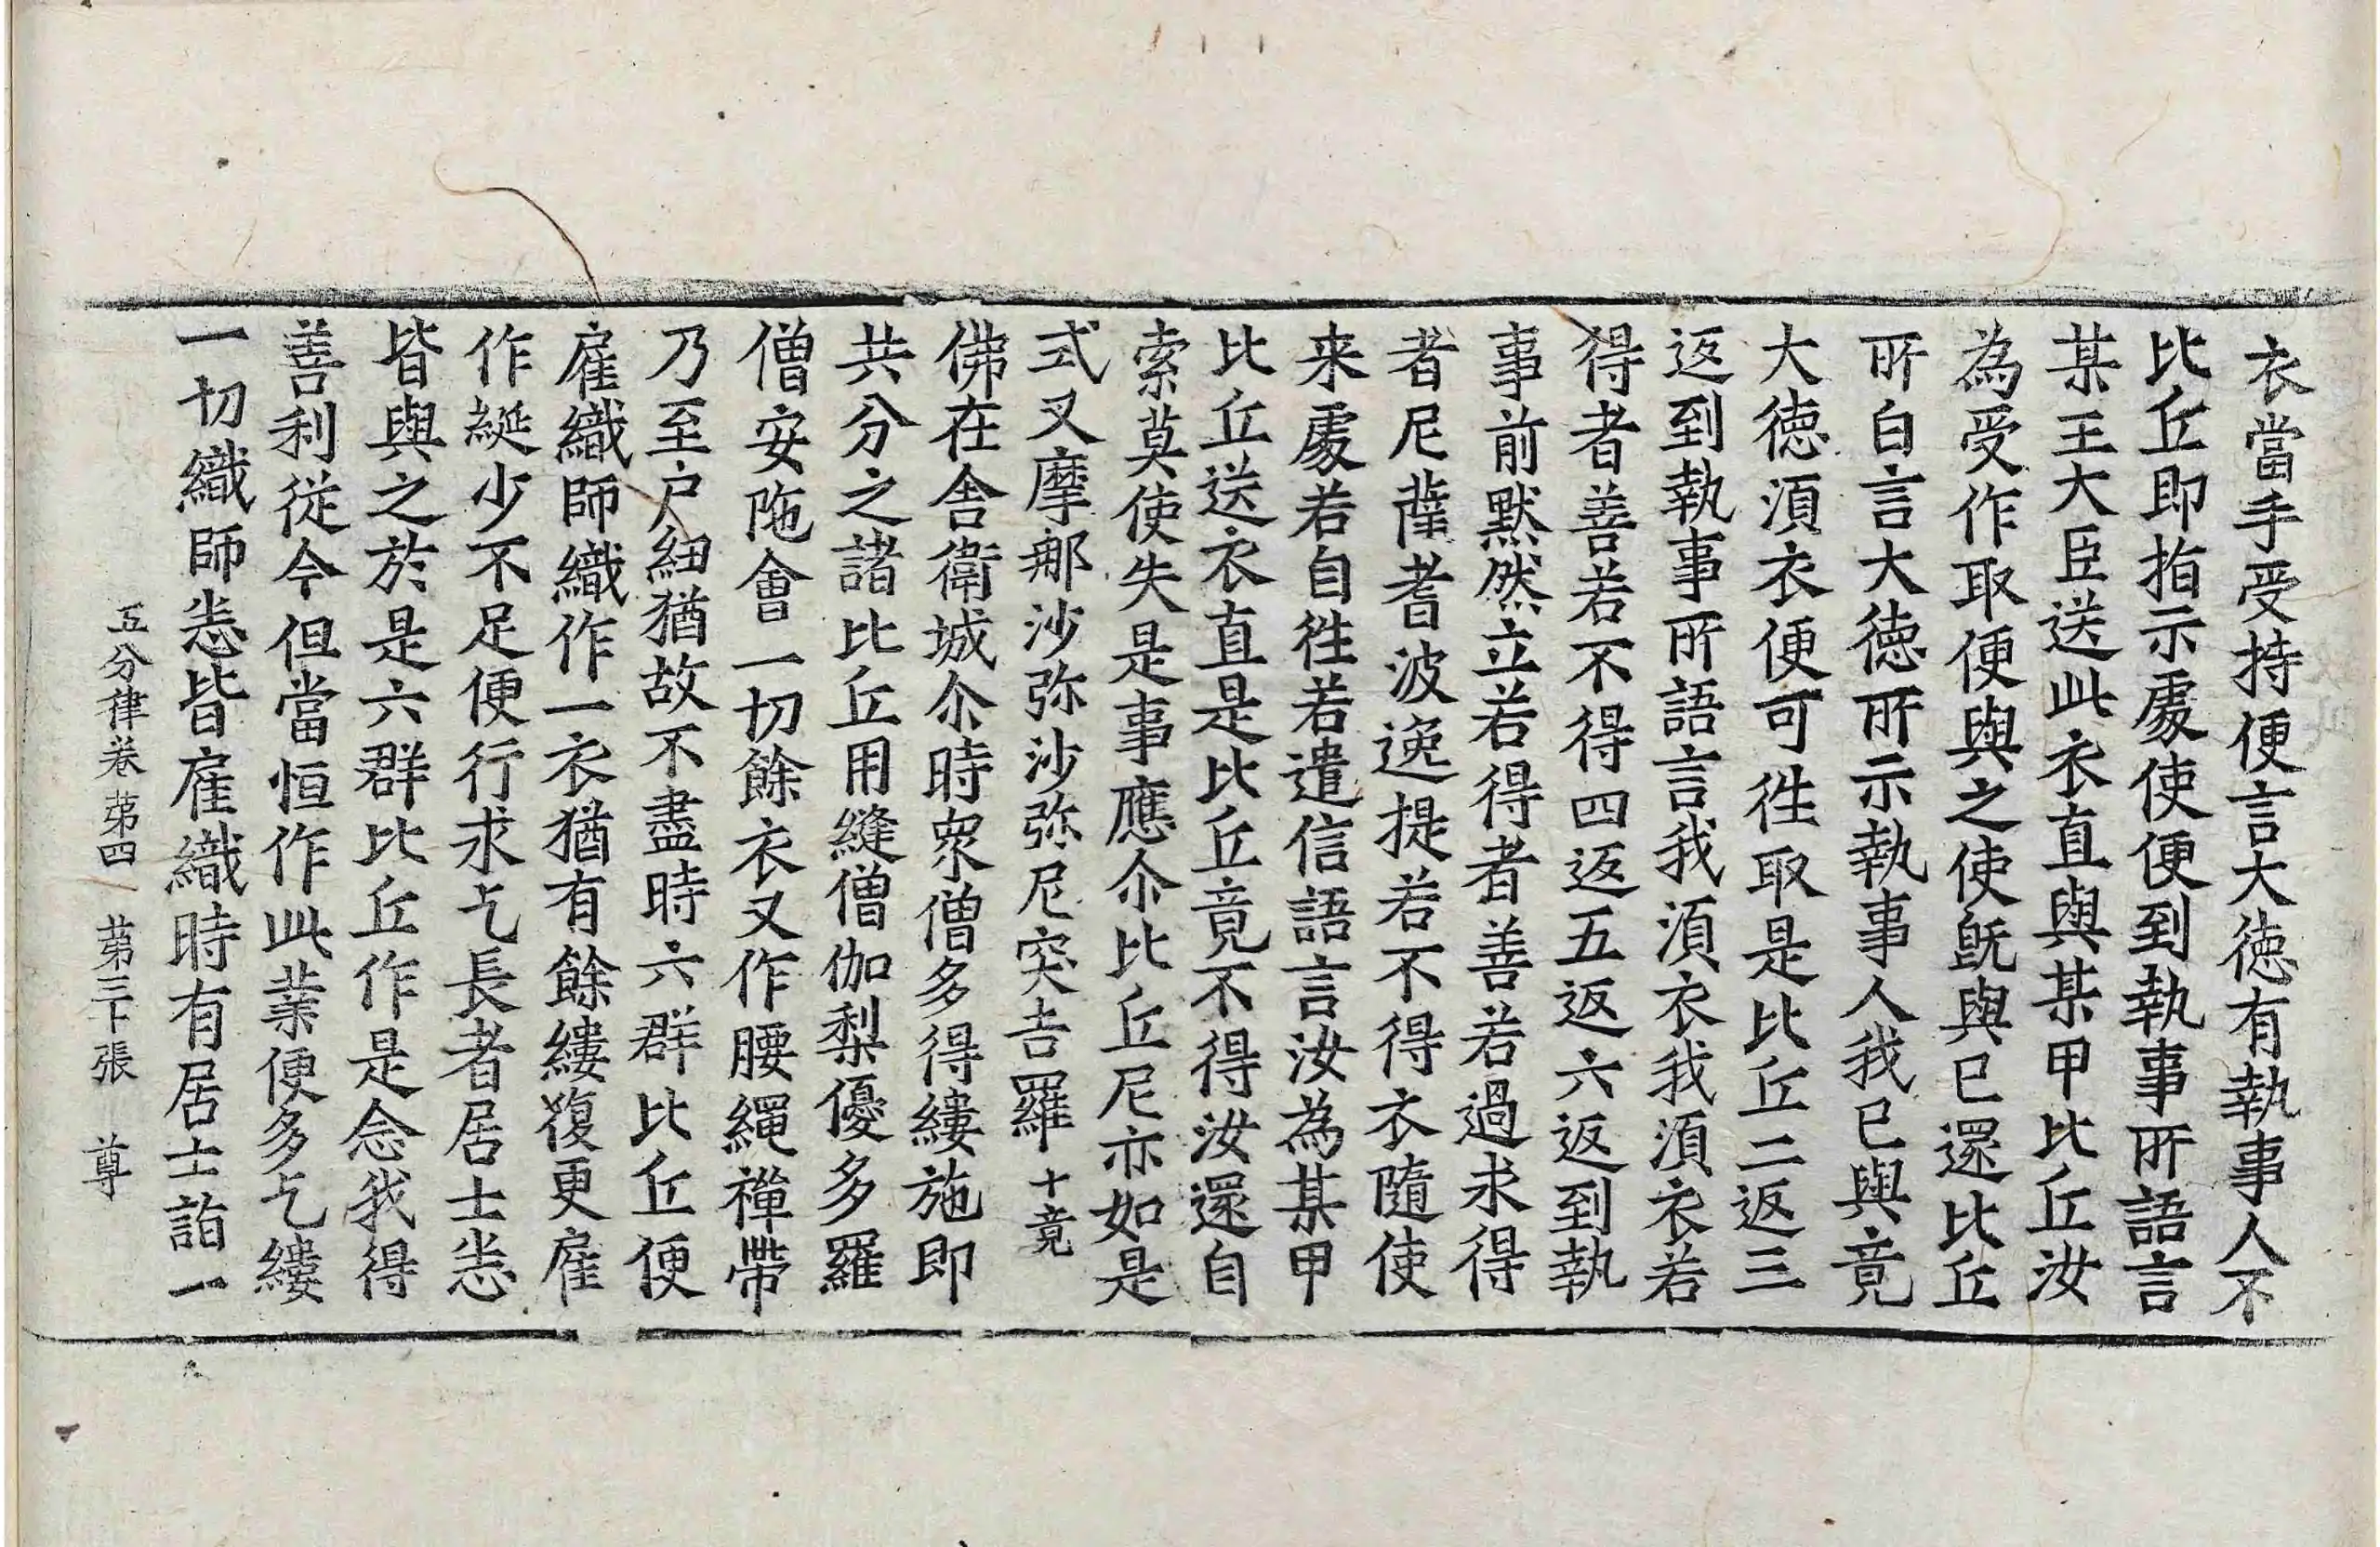 衣當手受持便言大徳有執事人不
比丘即指示處使便到執事所語言
某王大臣送此衣直與某甲比丘汝
為受作取便與之使旣與已還比丘
所白言大徳所示執事人我已與竟
大徳湏衣便可徃取是比丘二返三
返到執事所語言我湏衣我湏衣若
得者善若不得四返五返六返到執
事前默然立若得者善若過求得
者尼薩耆波逸提若不得衣隨使
来處若自徃若遣信語言汝為某甲
比丘送衣直是比丘竟不得汝還自
索莫使失是事應尒比丘尼亦如是
式叉摩那沙弥沙弥尼突吉羅十竟
佛在舍衛城尒時眾僧多得縷施即
共分之諸比丘用縫僧伽梨優多羅
僧安陁會一切餘衣又作腰繩禪帶
乃至户紐猶故不盡時六群比丘便
雇織師織作一衣猶有餘縷復更雇
作綖少不足便行求乞長者居士恙
皆與之於是六群比丘作是念我得
善利従今但當恒作此業便多乞縷
一切織師恙皆雇織時有居士詣一
五分律卷苐四　苐三十張　尊